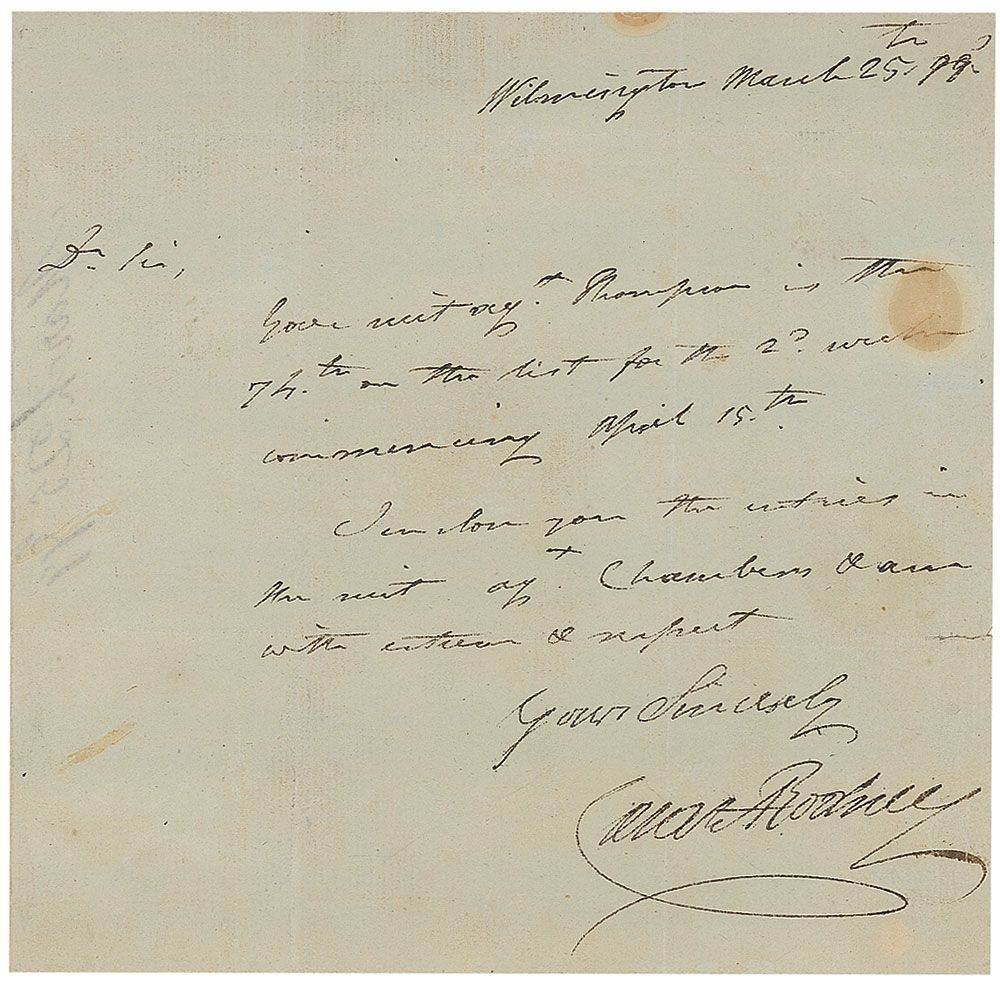 Wilmington March 25th 99.
Dr Sir,
Your suit agt. Thompson is the
74.th on the list for the 2d. week
commencing April 15.th
I enclose you the entries in
the suit agt Chambers & am
with esteem & respect
Yours Sincerely
Caesar A Rodney